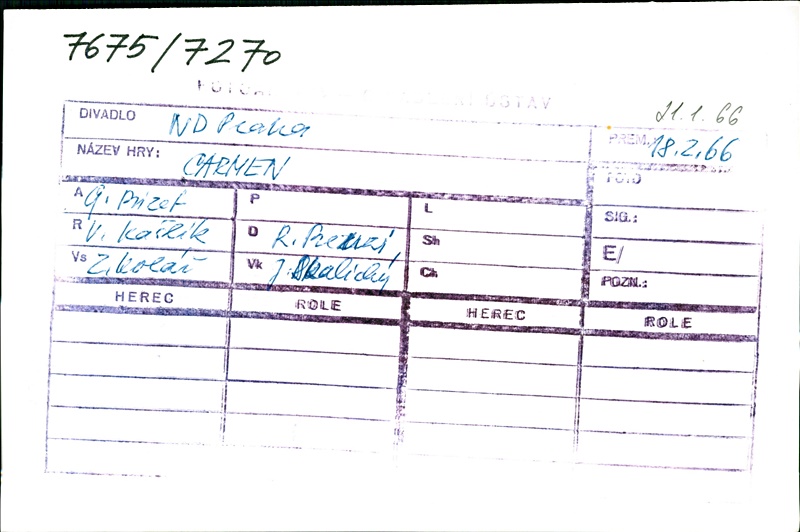 7675/7270
ÚSTAV
21.1.66
DIVADLO ND Praha PREM. 18.2.66
NÁZEV HRY: CARMEN FOTO
A G. Bizet P L SIG.:
R V. Kašlík D Sh E/
Vs Z. Kolář Vk J. Skalický Ch POZN.:
HEREC ROLE HEREC ROLE